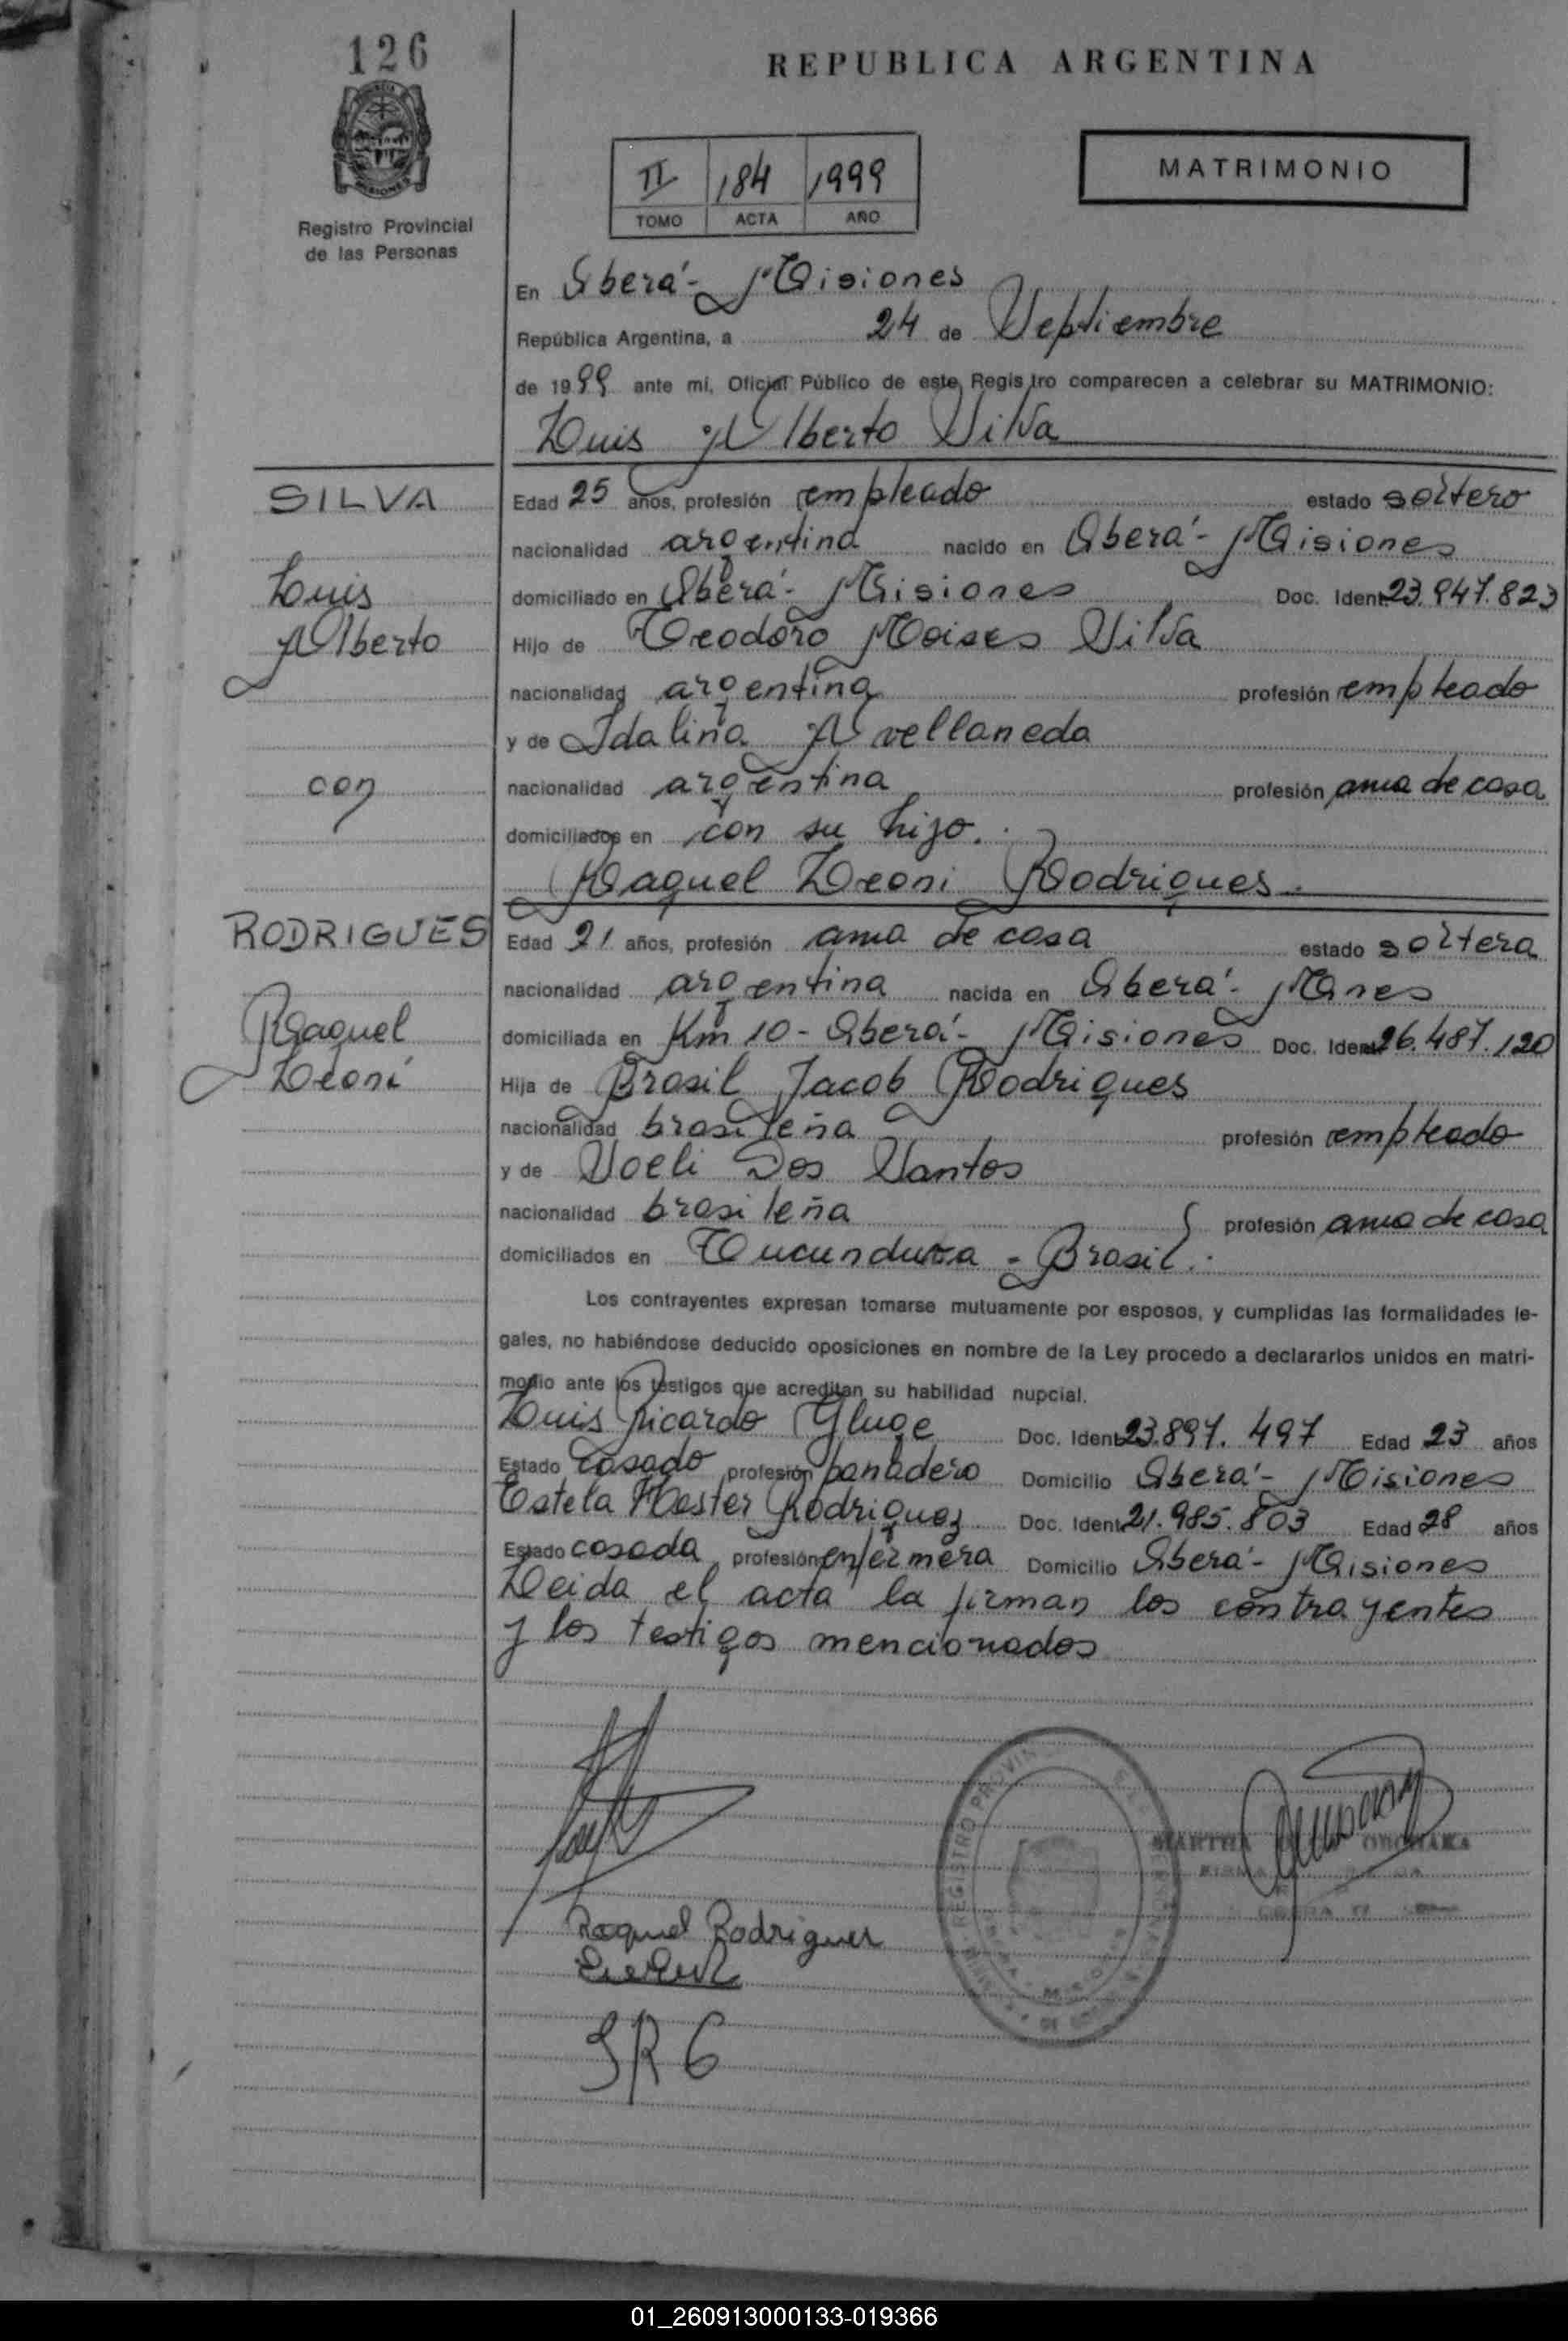 126
REPUBLICA ARGENTINA
Registro Provincial
de las Personas
II 184 1999
TOMO ACTA AÑO
MATRIMONIO
En Oberá - Misiones
República Argentina, a 24 de Septiembre
de 1999 ante mi, Oficial Público de este Registro comparecen a celebrar su MATRIMONIO:
Luis Alberto Silva
SILVA
Luis
Alberto
con
RODRIGUES
Raquel
Leoni
Edad 25 años, profesión empleado estado soltero
nacionalidad argentina nacido en Oberá - Misiones
domiciliado en Oberá - Misiones Doc. Ident. 23.947.823
Hijo de Teodoro Moises Silva
nacionalidad argentina profesión empleado
y de Idalina Avellaneda
nacionalidad argentina profesión ama de casa
domiciliados en con su hijo.
Raquel Leoni Rodrigues
Edad 21 años, profesión ama de casa estado soltera
nacionalidad argentina nacida en Oberá - Mnes
domiciliada en Km 10 - Oberá - Misiones Doc. Ident. 26.487.120
Hija de Brasil Jacob Rodrigues
nacionalidad brasileña profesión empleado
y de Soeli Dos Santos
nacionalidad brasileña profesión ama de casa
domiciliados en Tucunduva - Brasil.
Los contrayentes expresan tomarse mutuamente por esposos, y cumplidas las formalidades le-
gales, no habiéndose deducido oposiciones en nombre de la Ley procedo a declararlos unidos en matri-
monio ante los testigos que acreditan su habilidad nupcial.
Luis Ricardo Gluge Doc. Ident. 23.897.497 Edad 23 años
Estado casado profesión panadero Domicilio Oberá - Misiones
Estela Hester Rodriguez Doc. Ident. 21.985.803 Edad 28 años
Estado casada profesión enfermera Domicilio Oberá - Misiones
Leida el acta la firman los contrayentes
y los testigos mencionados
REGISTRO PROVIN
MARTHA
Raquel Rodrigues
01_260913000133-019366